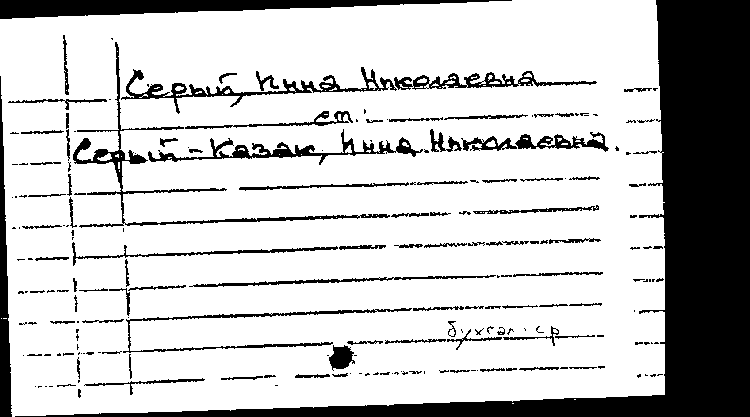 Серый, Инна Николаевна
см.:
Серый-Казак, Инна Николаевна.
бухгал. ср